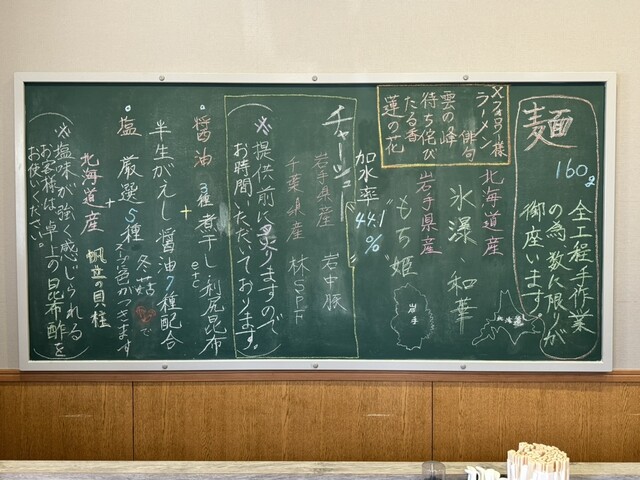 麺
160g
全工程手作業
の為、数に限りが
御座います。
Xフォロワー様
ラーメン
俳句
雲の峰
待ち侘び
たる香
蓮の花
北海道産
氷瀑、和華
岩手県産
"もち姫"
加水率 44.1%
北海道
岩手
チャーシュー
岩手県産 岩中豚
千葉県産 林SPF
(※提供前に炙りますので
お時間いただいております。)
醤油 3種煮干し 利尻昆布
etc
+
半生がえし 醤油7種配合
塩 厳選5種 冬姑
で
色がつきます
+
北海道産 帆立の貝柱
(※塩味が強く感じられる
お客様は、卓上の昆布酢を
お使いください。)